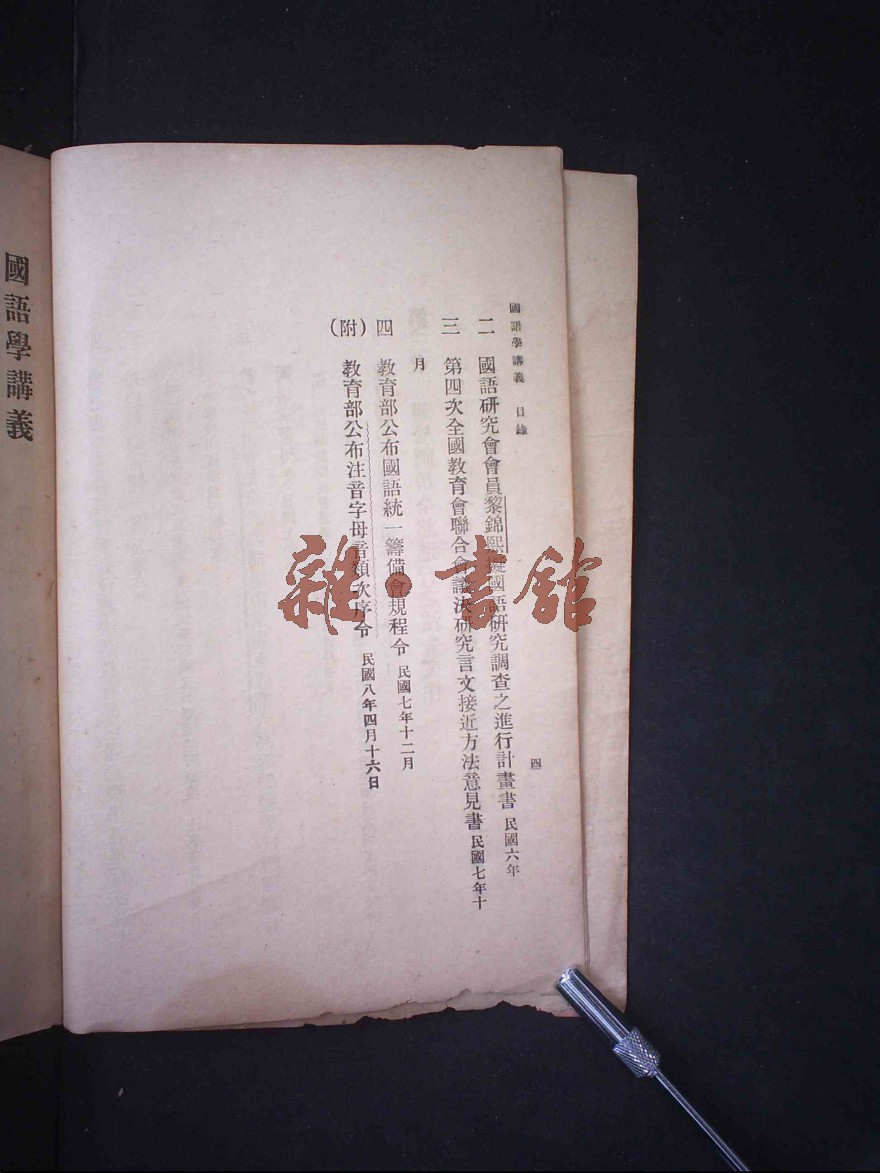 國語學講義 目錄 四
二 國語研究會會員黎錦熙擬國語研究調查之進行計畫書 民國六年
三 第四次全國教育會聯合會議決研究言文接近方法意見書 民國七年十
月
四 教育部公布國語統一籌備會規程令 民國七年十二月
(附) 教育部公布注音字母音類次序令 民國八年四月十六日
國語學講義
雜·書館